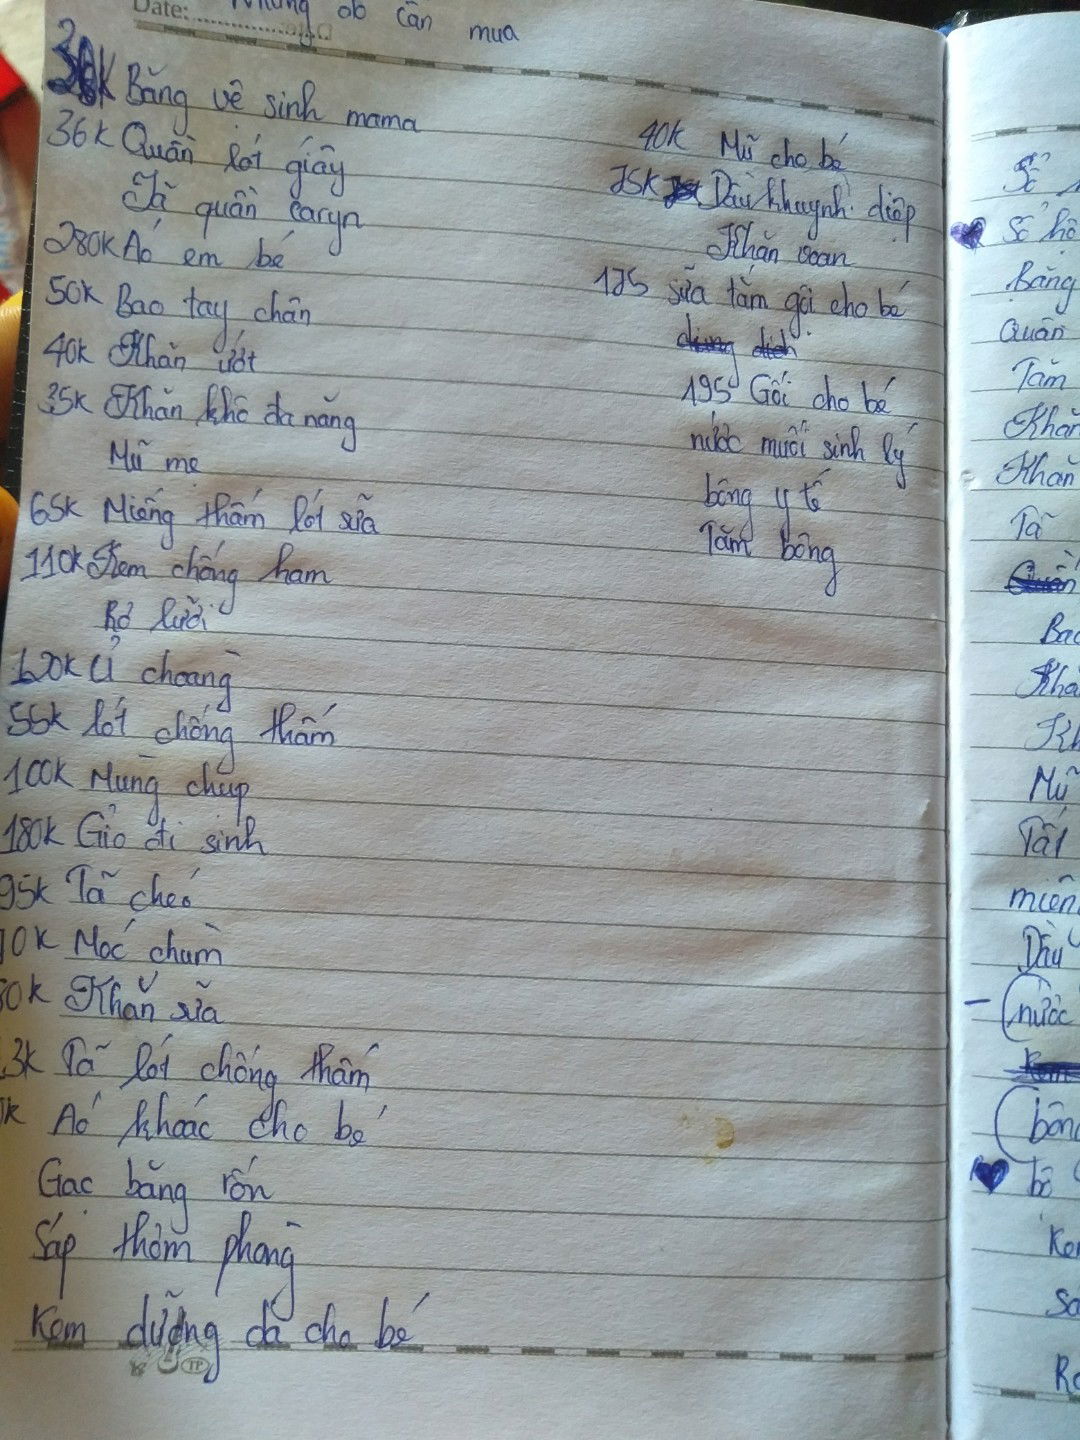 Date:
Những đồ cần mua
Băng vệ sinh mama
36K Quần lót giấy
Tã quần caryn
280K Aó em bé
50K Bao tay chân
40K Khăn ướt
35K Khăn khô đa năng
Mũ mẹ
65K Miếng thấm lót sữa
110K Kem chống ham
Rơ lưỡi
120K Ủ choàng
55K lót chống thấm
100K Mùng chụp
180K Giỏ đi sinh
95K Tã chéo
Móc chùm
Khăn sữa
3K Tã lót chống thấm
Aó khoác cho bé
Gạc băng rốn
Sáp thơm phòng
Kem dưỡng da cho bé
TP
40K Mũ cho bé
Dầu khuynh diệp
Khăn voan
sữa tắm gội cho bé
195 Gối cho bé
nước muối sinh lý
bông y tế
Tăm bông
Số
Số hộ
Băng
Quần
Tăm
Khăn
Khăn
Tã
Bao
Mũ
Tất
miến
Dầu
nước
bông
bô